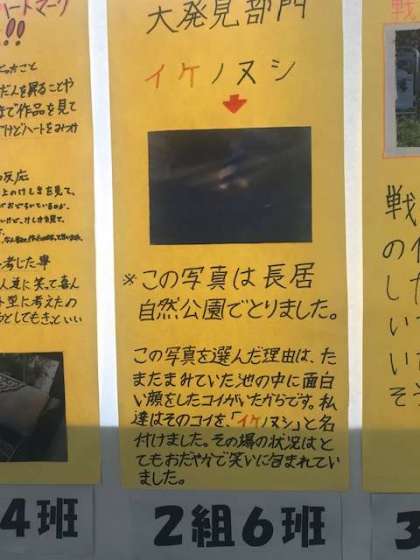 ハートマーク
!!
大発見部門
イケノヌシ
※この写真は長居
自然公園でとりました。
この写真を選んだ理由は、た
またまみていた池の中に面白
い顔をしたコイがいたからです。私
達はそのコイを、「イケノヌシ」と名
付けました。その場の状況はと
てもおだやかで笑いに包まれてい
ました。
2組6班
だんを昇ることや
まで作品を見て
けどハートをみつけ
反応
上のけしきを見て、
考した事
人達に笑って喜ん
ト型に考えたの
4班
戦
戦
の
し
い
い
そ
3